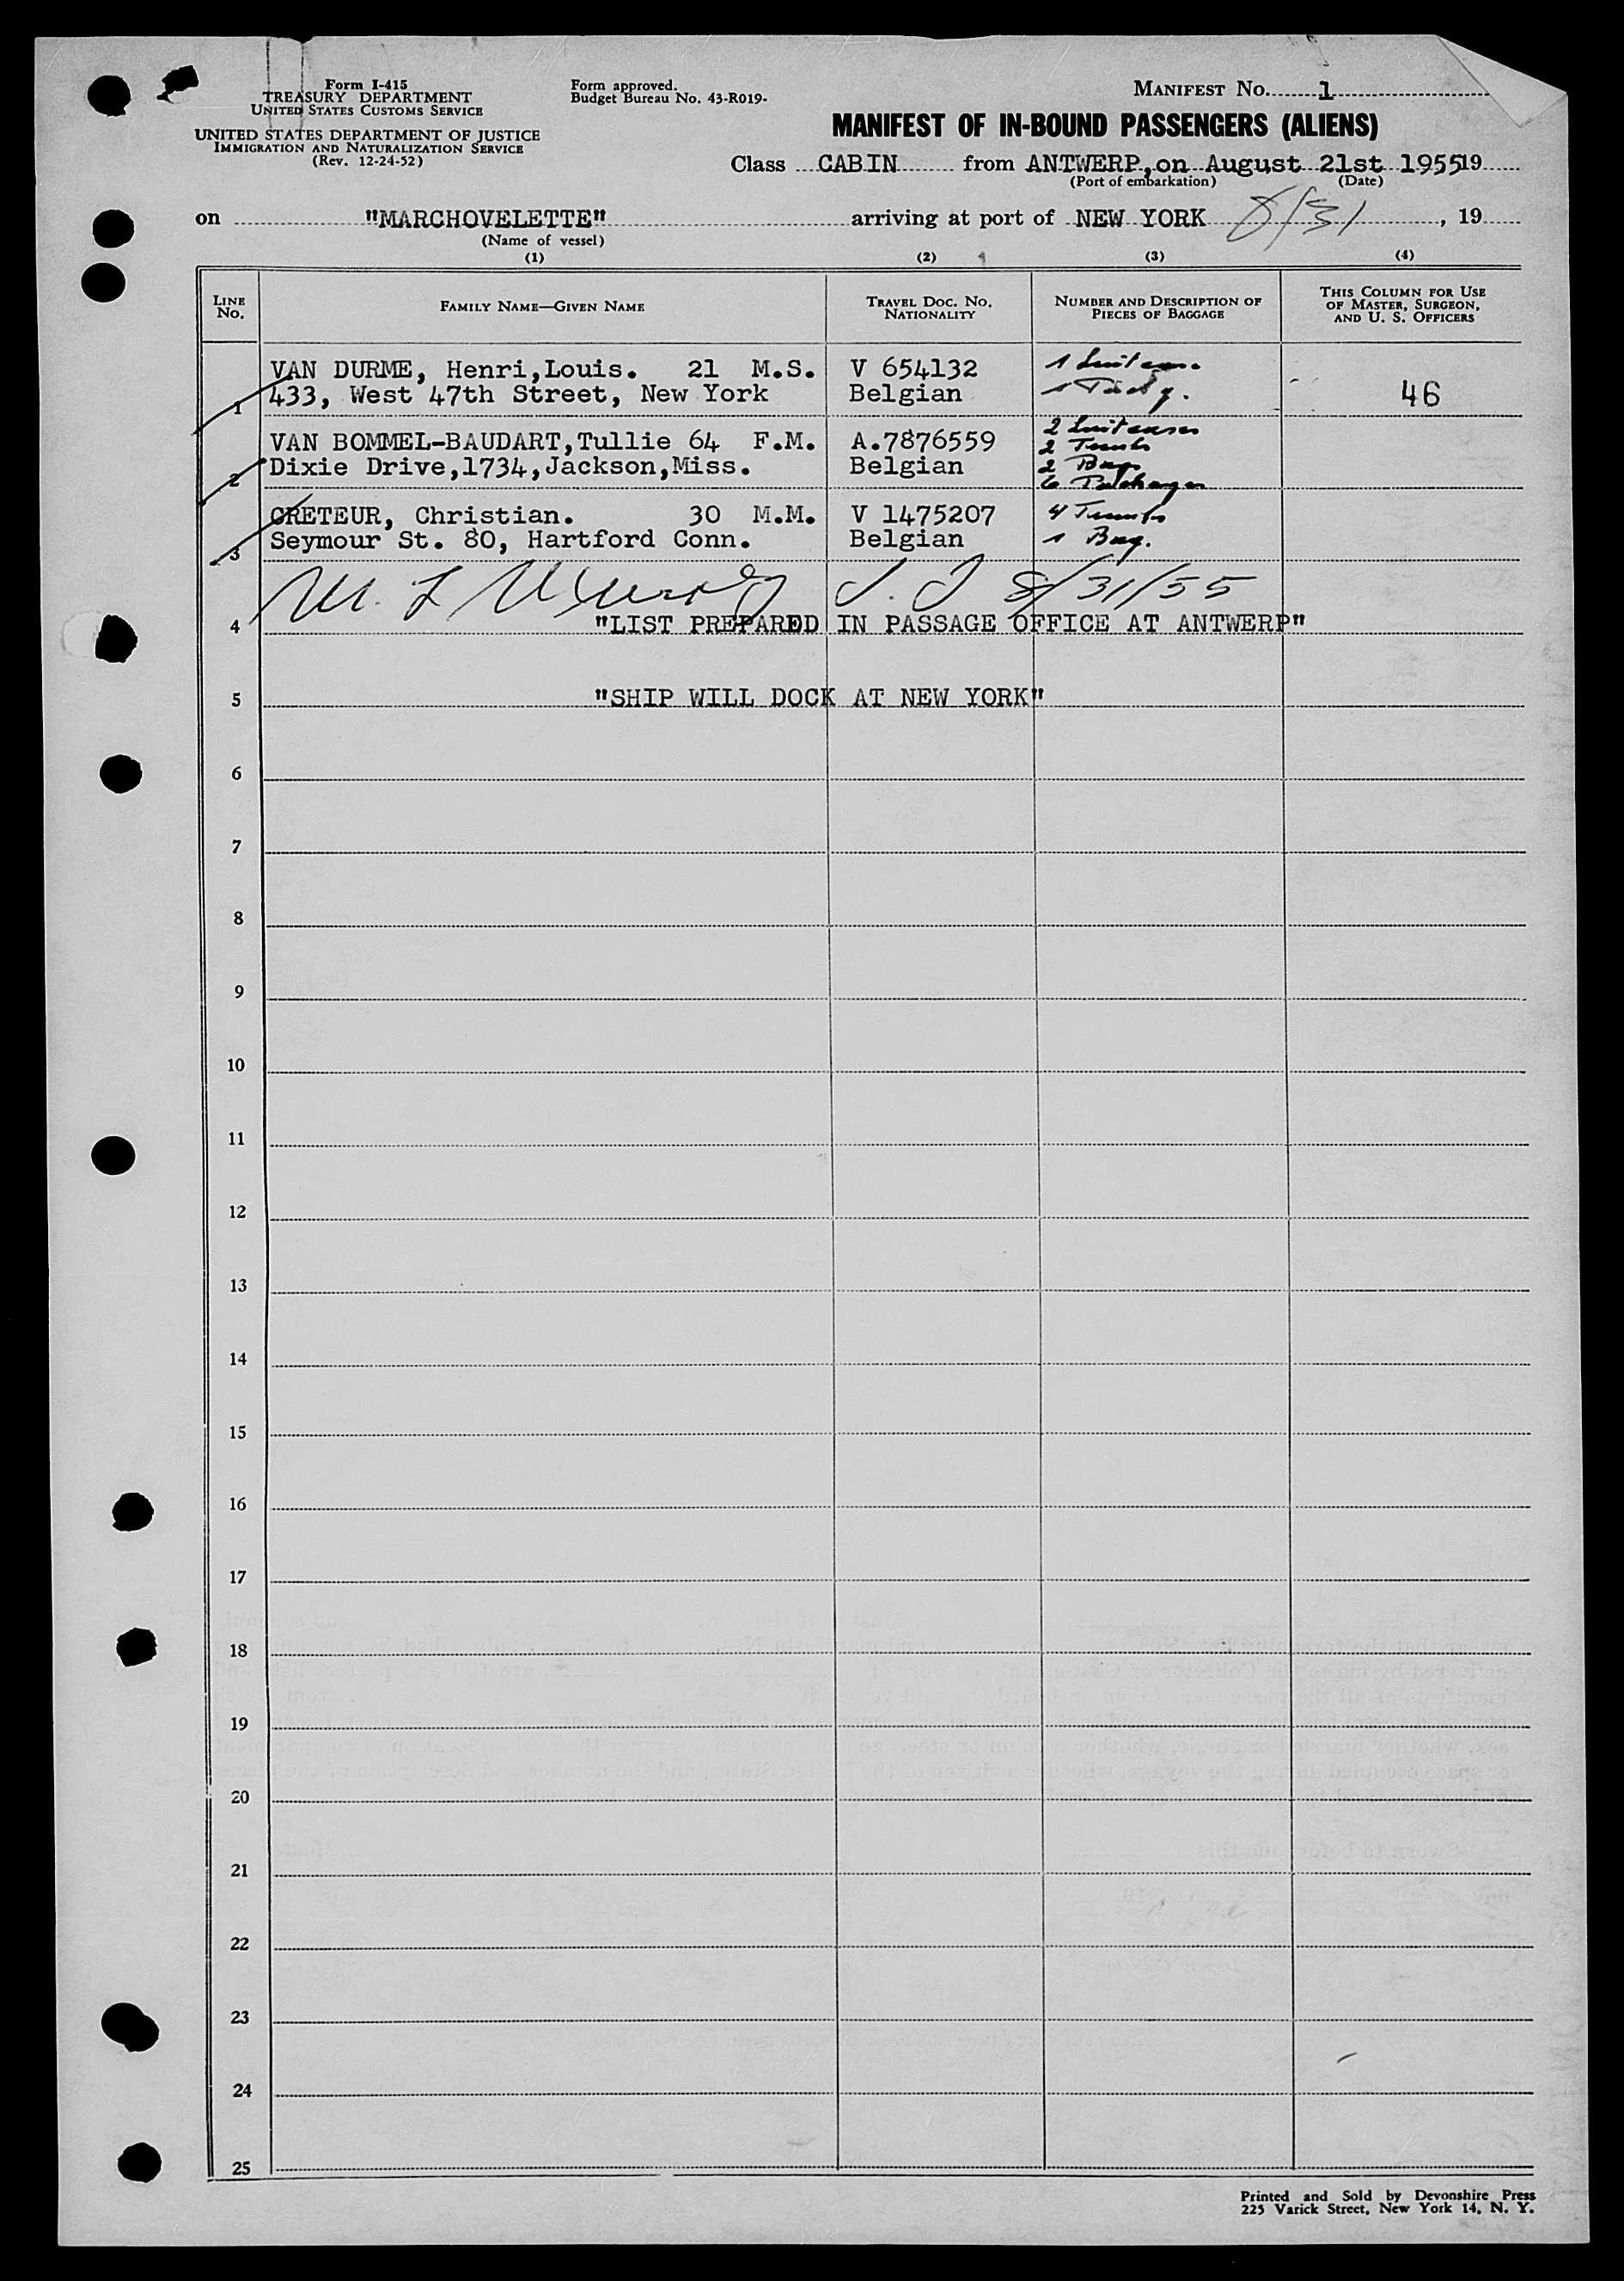 Form I-415
TREASURY DEPARTMENT
UNITED STATES CUSTOMS SERVICE
UNITED STATES DEPARTMENT OF JUSTICE
IMMIGRATION AND NATURALIZATION SERVICE
(Rev. 12-24-52)
Form approved.
Budget Bureau No. 43-R019-
MANIFEST No. 1
MANIFEST OF IN-BOUND PASSENGERS (ALIENS)
Class CABIN from ANTWERP, on August 21st 1955 19
(Port of embarkation) (Date)
on "MARCHOVELETTE" arriving at port of NEW YORK 8/31, 19
(Name of vessel)
(1) (2) (3) (4)
LINE No. FAMILY NAME—GIVEN NAME TRAVEL DOC. NO. NATIONALITY NUMBER AND DESCRIPTION OF PIECES OF BAGGAGE THIS COLUMN FOR USE OF MASTER, SURGEON, AND U. S. OFFICERS
VAN DURME, Henri,Louis. 21 M.S. V 654132 1 Suitcase
1 433, West 47th Street, New York Belgian 1 46
VAN BOMMEL-BAUDART,Tullie 64 F.M. A.7876559 2 Suitcases 2 Trunks
2 Dixie Drive,1734,Jackson,Miss. Belgian 2 Bags 6
CRETEUR, Christian. 30 M.M. V 1475207 4 Trunks
3 Seymour St. 80, Hartford Conn. Belgian 1 Bag.
8/31/55
4 "LIST PREPARED IN PASSAGE OFFICE AT ANTWERP"
5 "SHIP WILL DOCK AT NEW YORK"
6
7
8
9
10
11
12
13
14
15
16
17
18
19
20
21
22
23
24
25
Printed and Sold by Devonshire Press
225 Varick Street, New York 14, N. Y.